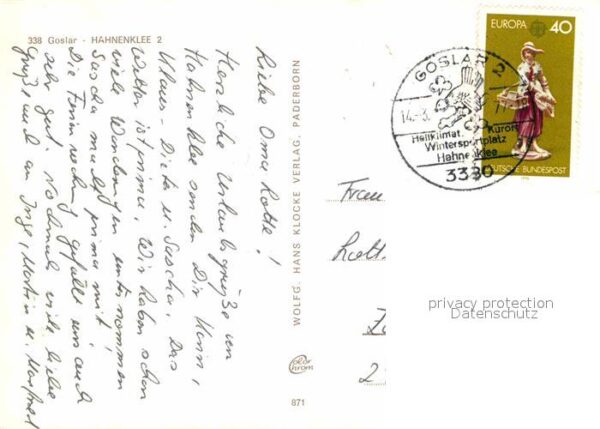 338 Goslar - HAHNENKLEE 2
Liebe Oma Lotte!
Herzliche Urlaubsgrüße von
Hahnenklee senden Dir
Klaus-Dieter u. Sascha. Das
Wetter ist prima. Wir haben schon
viele Wanderungen unternommen
Sascha macht prima mit!
Die Ferienwohnung gefällt uns auch
sehr gut. Nochmals viele liebe
Grüße, auch an Inge, Martin u. Manfred
WOLFG. HANS KLOCKE VERLAG, PADERBORN
color
chrom
871
EUROPA 40
DEUTSCHE BUNDESPOST
GOSLAR 2
14.-3.
Heilklimat. Kurort
Wintersportplatz
Hahnenklee
3380
Frau
privacy protection
Datenschutz
2